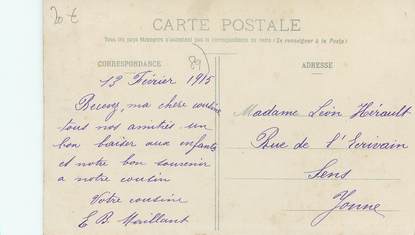 20 €
CARTE POSTALE
Tous les pays étrangers n'acceptent pas la correspondance au verso (Se renseigner à la Poste)
CORRESPONDANCE
89
ADRESSE
12 Février 1915
Recevez, ma chère cousine
tous nos amitiés un
bon baiser aux enfants
et notre bon souvenir
a notre cousin
Votre cousine
E B. Mérillant
Madame Léon Hérault
Rue de l'Ecrivain
Sens
Yonne